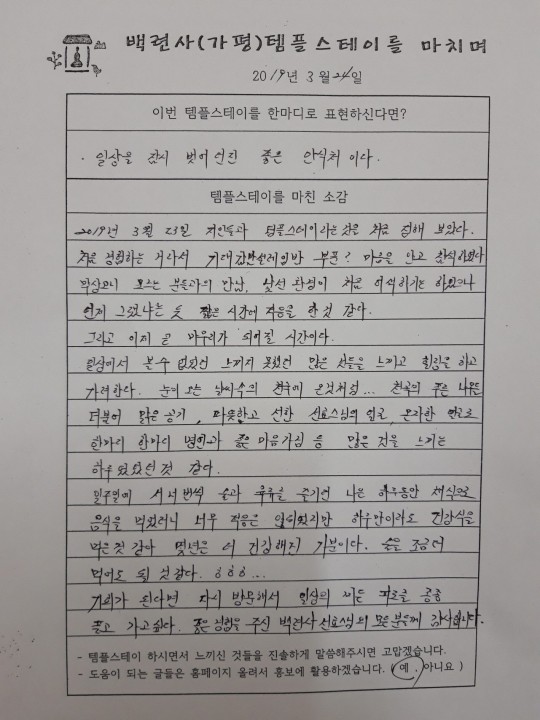 백련사(가평)템플스테이를 마치며
2019년 3월 24일
이번 템플스테이를 한마디로 표현하신다면?
. 일상을 잠시 벗어던진 좋은 안식처 이다.
템플스테이를 마친 소감
2019년 3월 23일 지인들과 템플스테이라는것을 처음 접해 보았다.
처음 경험하는 거라서 기대감반설레임반 부푼? 마음을 안고 참석하였다
막상오니 모르는 분들과의 만남, 낯선 환경이 처음 어색하기는 하였으나
언제 그랬냐는 듯 짧은 시간에 적응을 한것 같다.
그리고 이제 곧 마무리가 되어질 시간이다.
일상에서 볼수 없었던 느끼지 못했던 많은 것들을 느끼고 힐링을 하고
가려한다. 눈이 오는 날씨속의 천국에 온것처럼... 천국의 푸른 나무들
더불어 맑은 공기, 따뜻하고 선한 스님의 얼굴, 온자한 말로
한마디 한마디 명언과 좋은 마음가짐 등 많은 것을 느끼는
하루였었던것 같다.
일주일에 서너번씩 술과 육류를 즐기던 나는 하루동안 채식으로
음식을 먹었더니 너무 적응은 안되었지만 하루만이라도 건강식을
먹은것 같아 몇년은 더 건강해진 기분이다. 술을 조금 더
먹어도 될 것 같다. ㅎㅎㅎ...
기회가 된다면 다시 방문해서 일상의 찌든 피로를 공중
풀고 가고싶다. 좋은 경험을 주신 백련사 스님외 모든분들께 감사합니다.
- 템플스테이 하시면서 느끼신 것들을 진솔하게 말씀해주시면 고맙겠습니다.
- 도움이 되는 글들은 홈페이지 올려서 홍보에 활용하겠습니다. (예, 아니요)